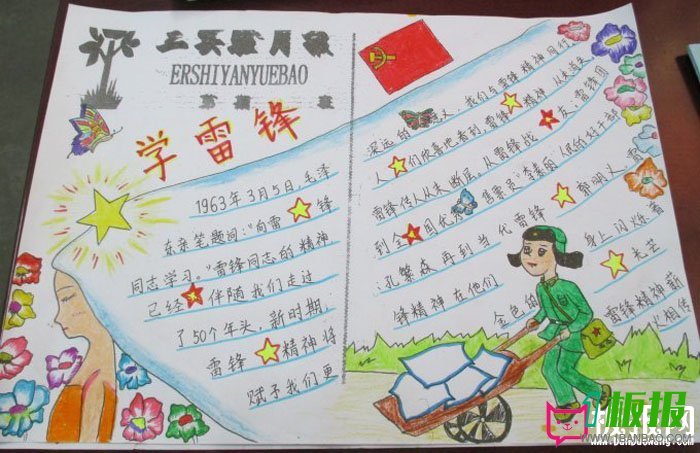 二实验月报
ERSHIYANYUEBAO
第 期 班
学雷锋
1963年3月5日,毛泽
东亲笔题词:"向雷锋
同志学习。"雷锋同志的精神
已经伴随我们走过
了50个年头,新时期,
雷锋精神将
赋予我们更
深远的意义,我们与雷锋精神同行
人们欣喜地看到,雷锋精神从未消失
雷锋传人从未断层。从雷锋战友,雷锋团
到全国优秀售票员"李素丽"人民的好干部
孔繁森再到当代雷锋郭明义,雷
锋精神在他们身上闪烁着
金色的光芒
雷锋精神薪
火相传
板报网
WWW.1BANBAO.COM